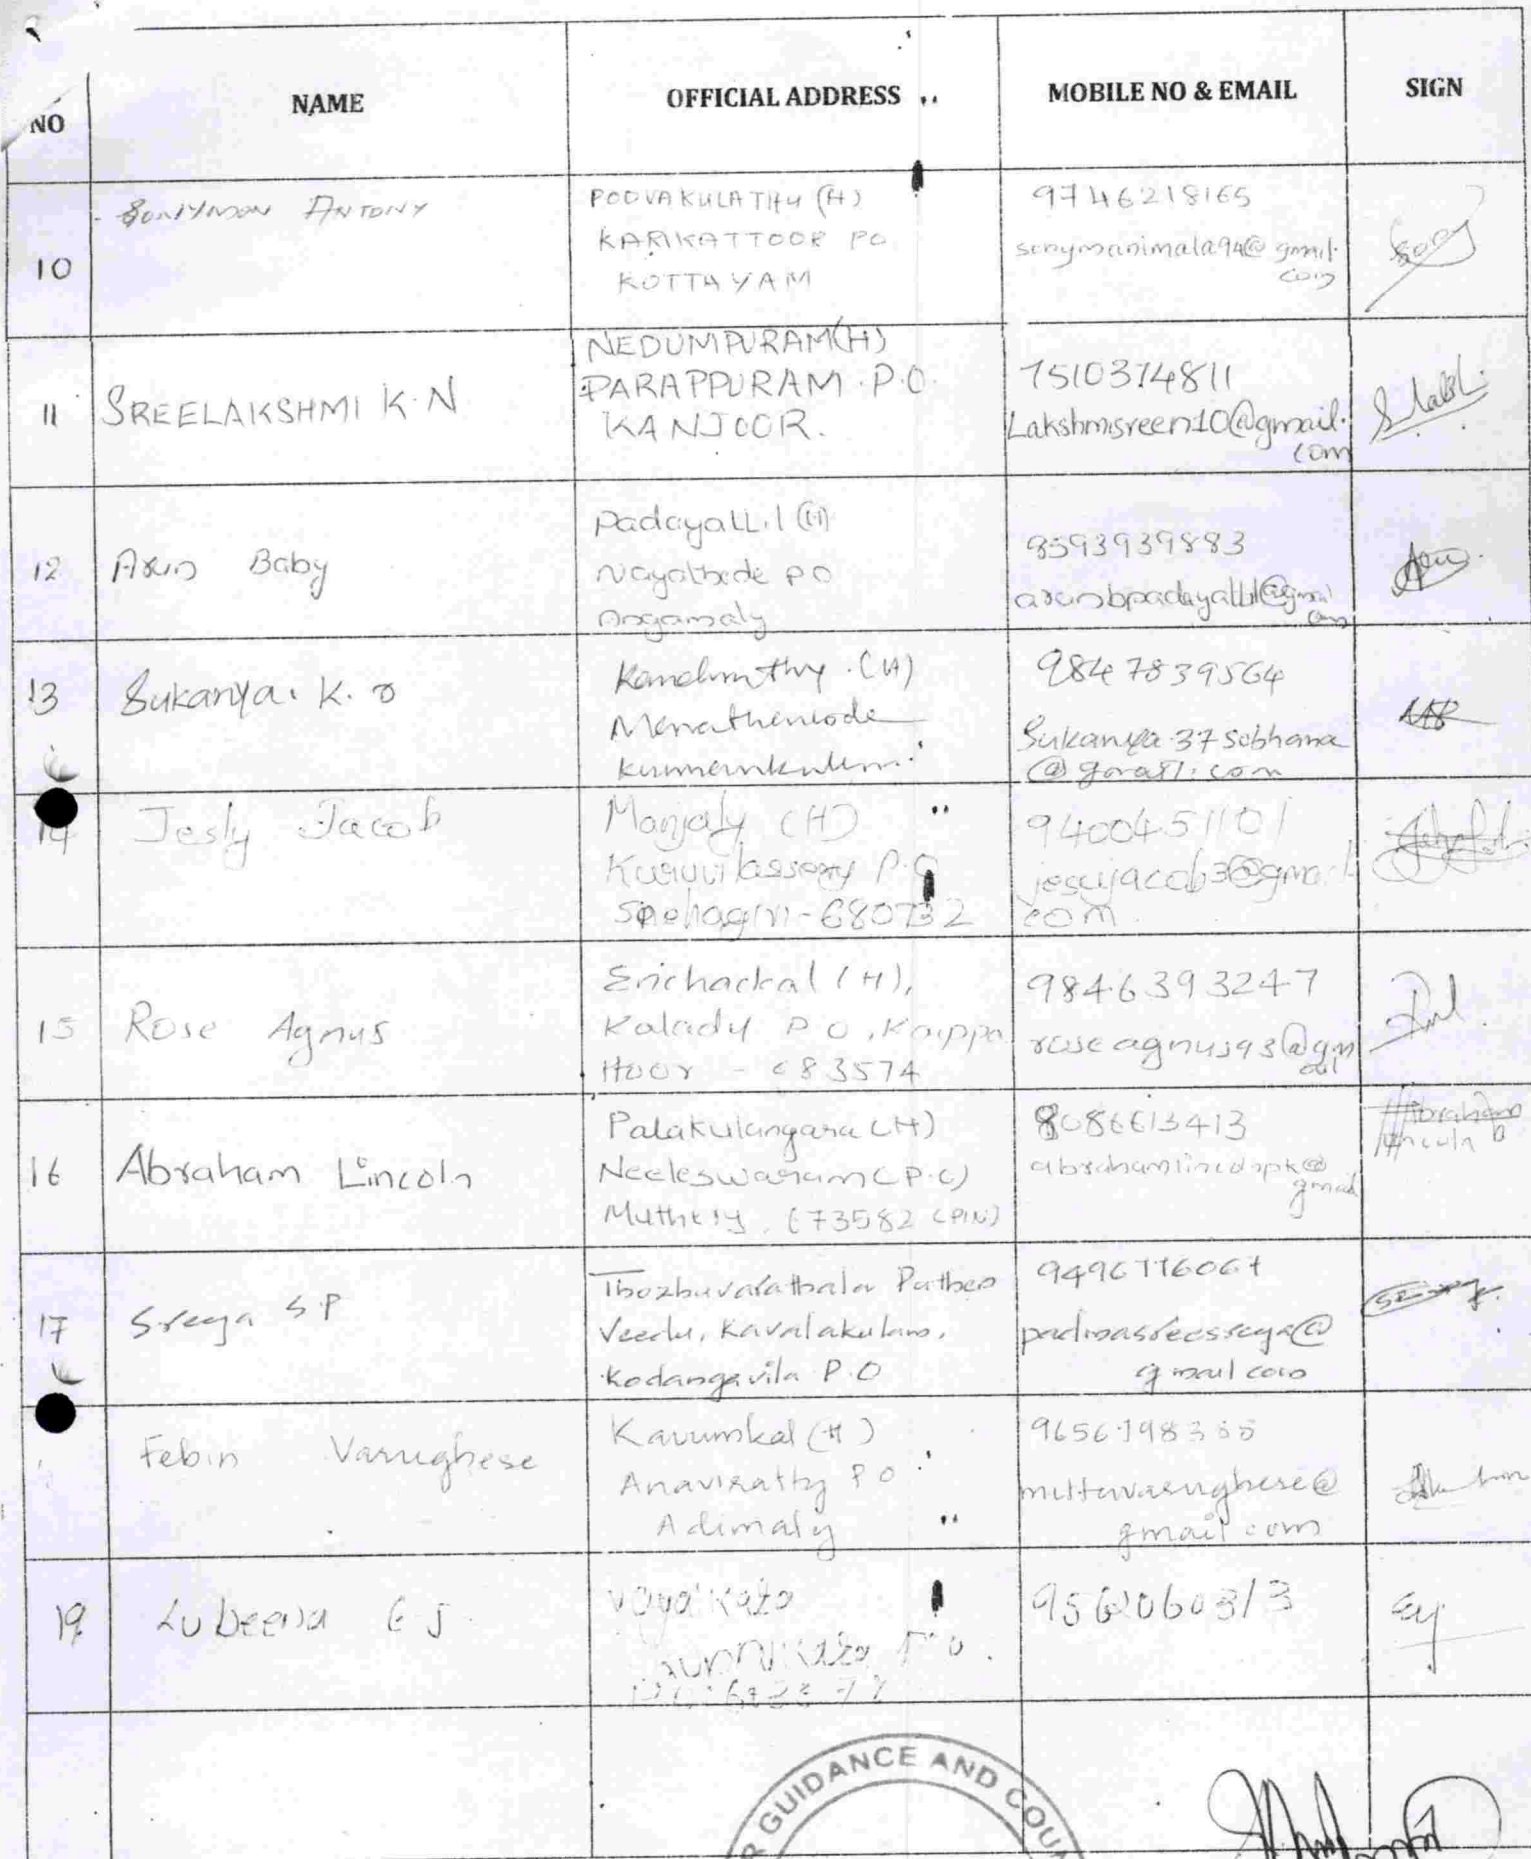 NO NAME OFFICIAL ADDRESS MOBILE NO & EMAIL SIGN
10 ANTONY
POOVAKULATHU (H)
KARIKATTOOR PO
KOTTAYAM
9746218165
sonymanimala94@gmail.
com
11 SREELAKSHMI K.N
NEDUMPURAM(H)
PARAPPURAM.P.O.
KANJOOR.
7510374811
Lakshmisreen10@gmail.
com
12 Arun Baby
Padayattil (H)
Nayathode PO
Angamaly
8593939883
@gmail
com
13 Sukanya. K.
(H)
9847839564
Sukanya.37sobhana
@gmail.com
14 Jesly Jacob
Manjaly (H)
Kuruvilassery P.O
Snehagiri-680732
9400451101
@gmail
com
15 Rose Agnus
Erichackal (H),
Kalady P O, Kaippa
ttoor - 683574
9846393247
roseagnus93@gm
ail
16 Abraham Lincoln
Palakulangara (H)
Neeleswaram (P.O)
Muthery, 673582 (PIN)
8086613413
abrahamlincolnpk@
gmail
Abraham
Lincoln
17 Sreeja S.P
Thozhuvarathala Puthen
Veedu, Kavalakulam,
Kodangavila P.O
padmasreesreeja@
gmail com
Febin Varughese
Kavumkal (H)
PO
Adimaly
gmail com
19 Lubeena E J
GUIDANCE AND